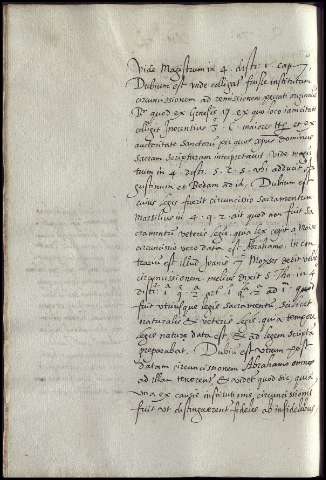 Vide Magistrum in 4 disti: 1 cap. 7.
Dubium est unde colligas fuisse institutam
circuncisionem ad remissionem peccati originalis
ex Genesis 17. ex quo loco
colligit Inocentius 3. C. maiores et ex
auctoritate sanctorum per quos opus dominus
sacram scripturam interpretatus vide magis
trum in 4 disti. 1. 2. 5. ubi adducit
gustinum et Bedam ad id. Dubium est
cuius legis fuerit circuncisio sacramentum
Marsilius in 4. q. 2. ait quod non fuit sa
cramentum veteris legis, quia lex cepit a Moise
circuncisio vero data est Abrahamo. in con
trarium est illud Joanis 7 Moyses dedit vobis
circuncisionem. melius dixit S. Tho. in 4
disti. 1 q. 2 ar. 1 q. 2 ad 1. quod
fuit utriusque legis sacramentum, scilicet
naturalis & veteris legis. quia tempore
legis nature data est & ad legem scripta
preparabat. Dubium est utrum post
datam circuncisionem Abrahamo omnes
ad illam tenerent & videt quod sic, quia
una ex causis institutionis circuncisionis
fuit ut distinguerent fideles ab infidelibus